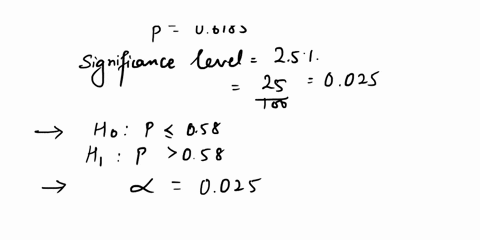 P = 0.6183
Significance level = 2.5%
= 25/100 = 0.025
→ H₀: P ≤ 0.58
H₁: P > 0.58
→ α = 0.025